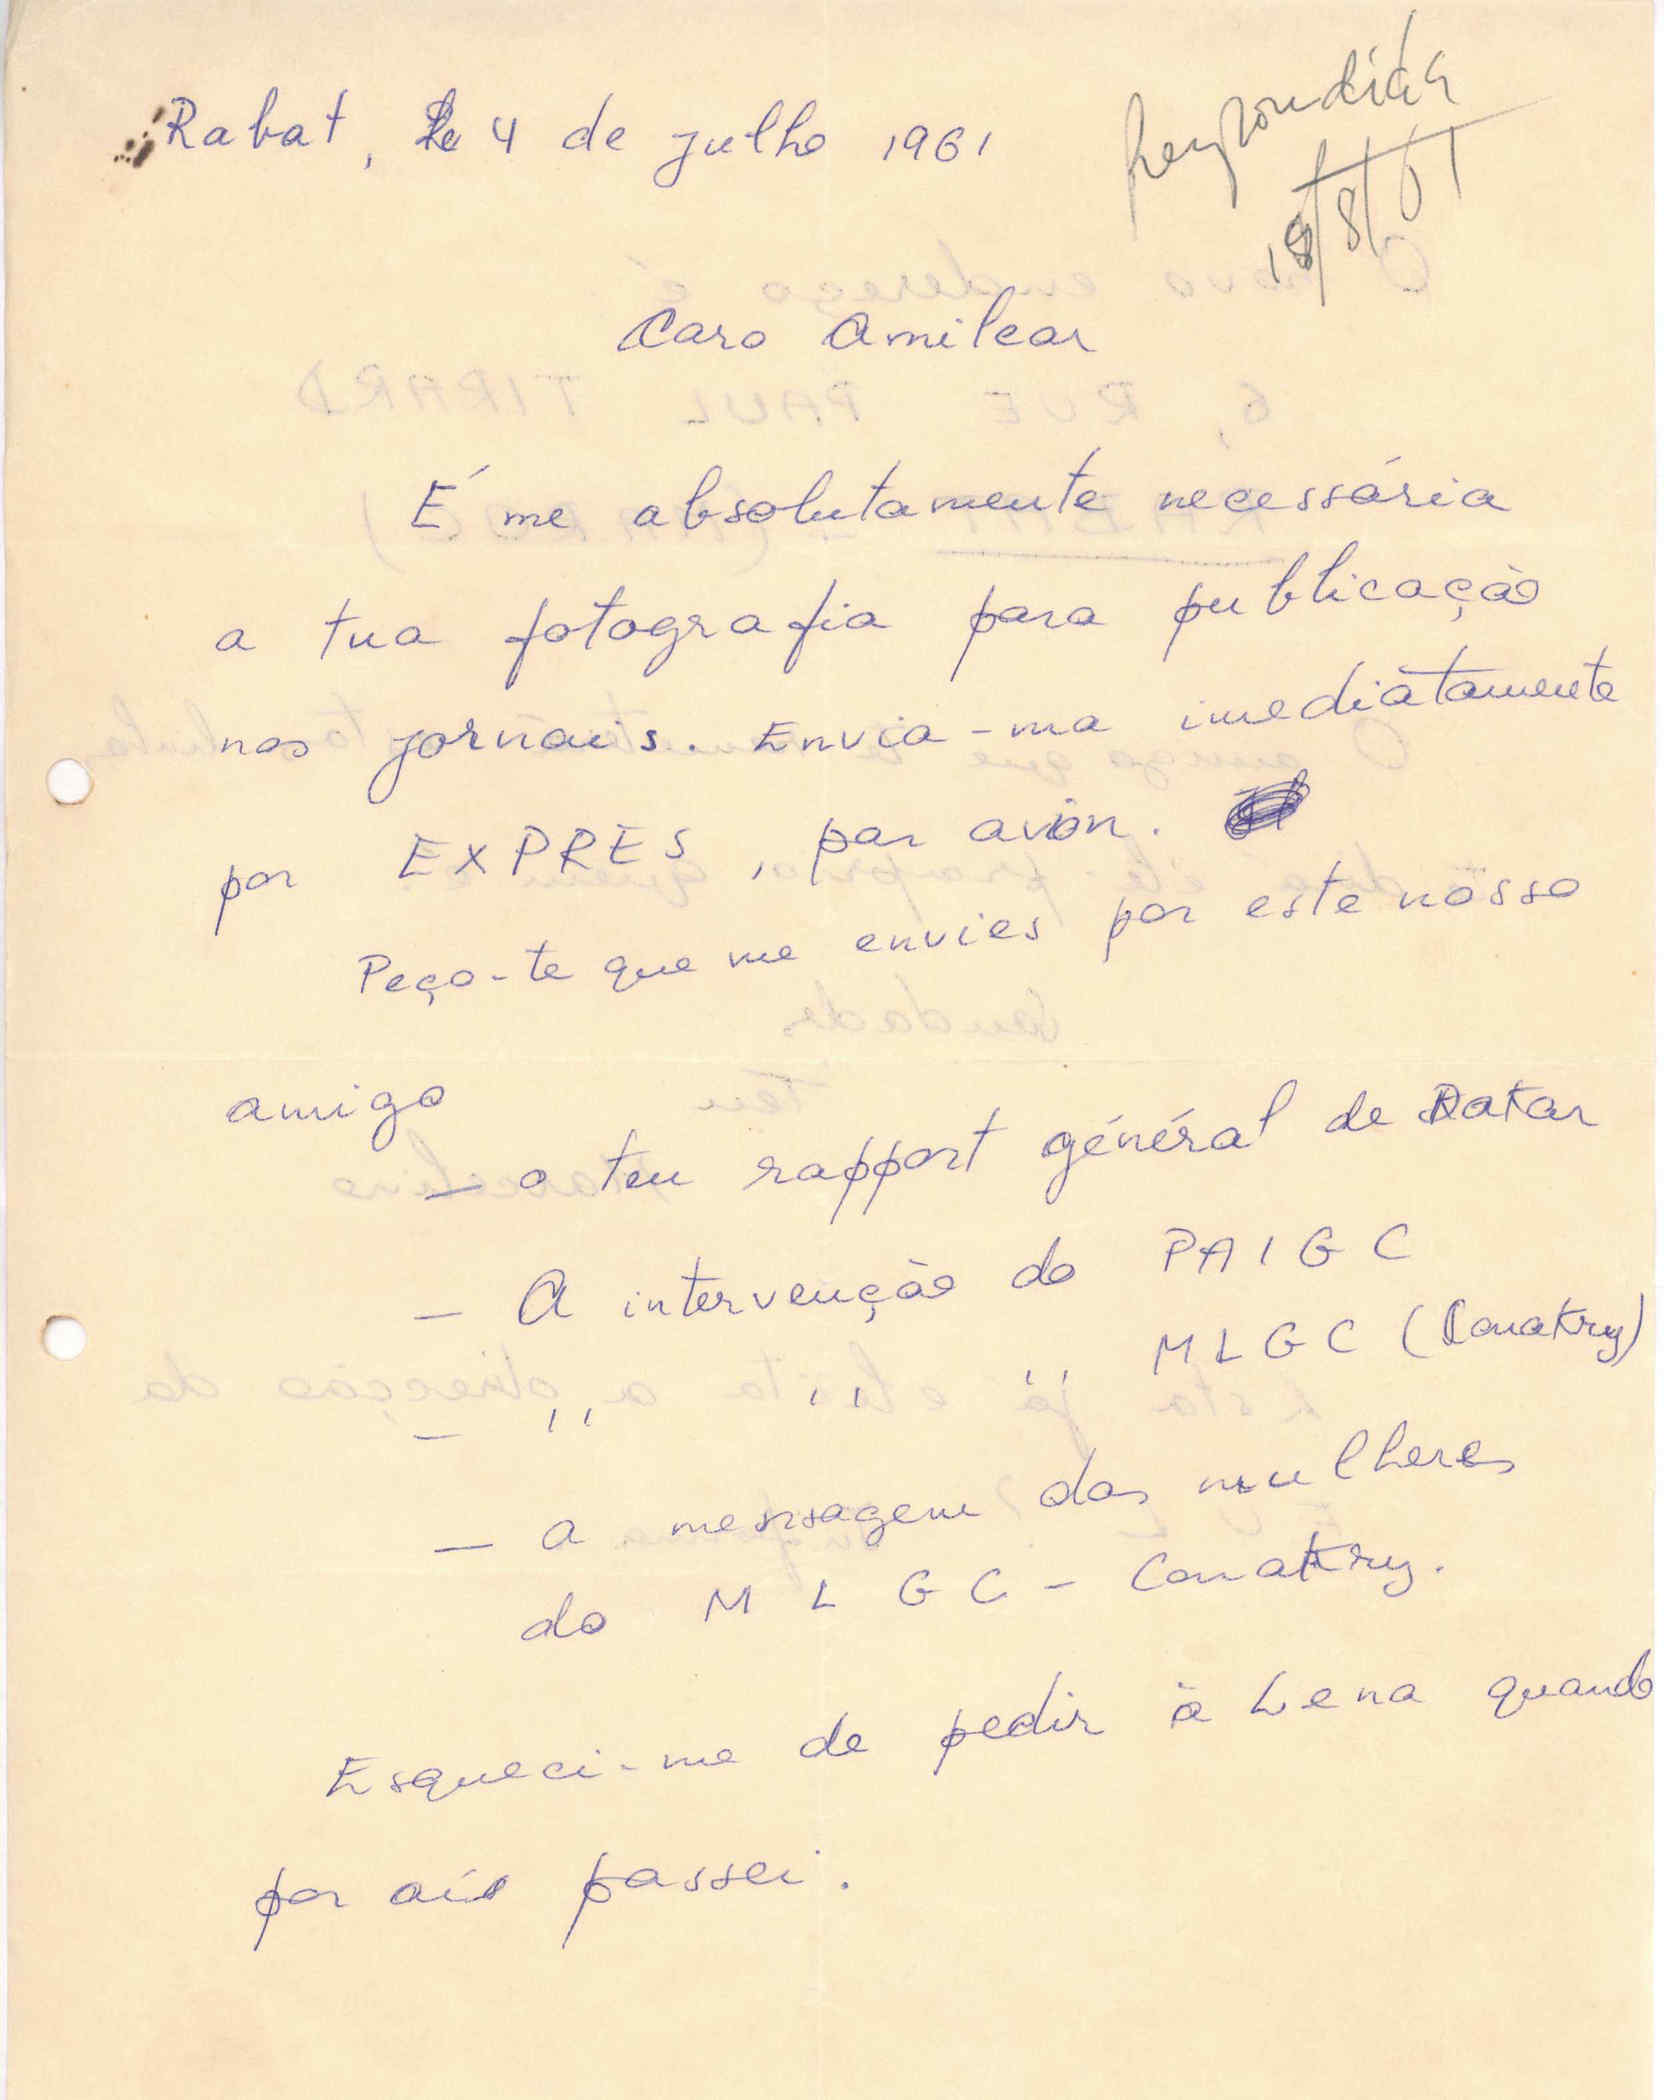 Rabat, le 4 de Julho 1961
Respondida
18/8/61
Caro Amilcar
É me absolutamente necessária
a tua fotografia para publicação
nos jornais. Envia-ma imediatamente
por EXPRES, par avion.
Peço-te que me envies por este nosso
amigo
— o teu rapport général de Dakar
— A intervenção do PAIGC
— ,, ,, ,, MLGC (Conakry)
— a mensagem das mulheres
do MLGC - Conakry.
Esqueci-me de pedir à Lena quando
por aí passei.